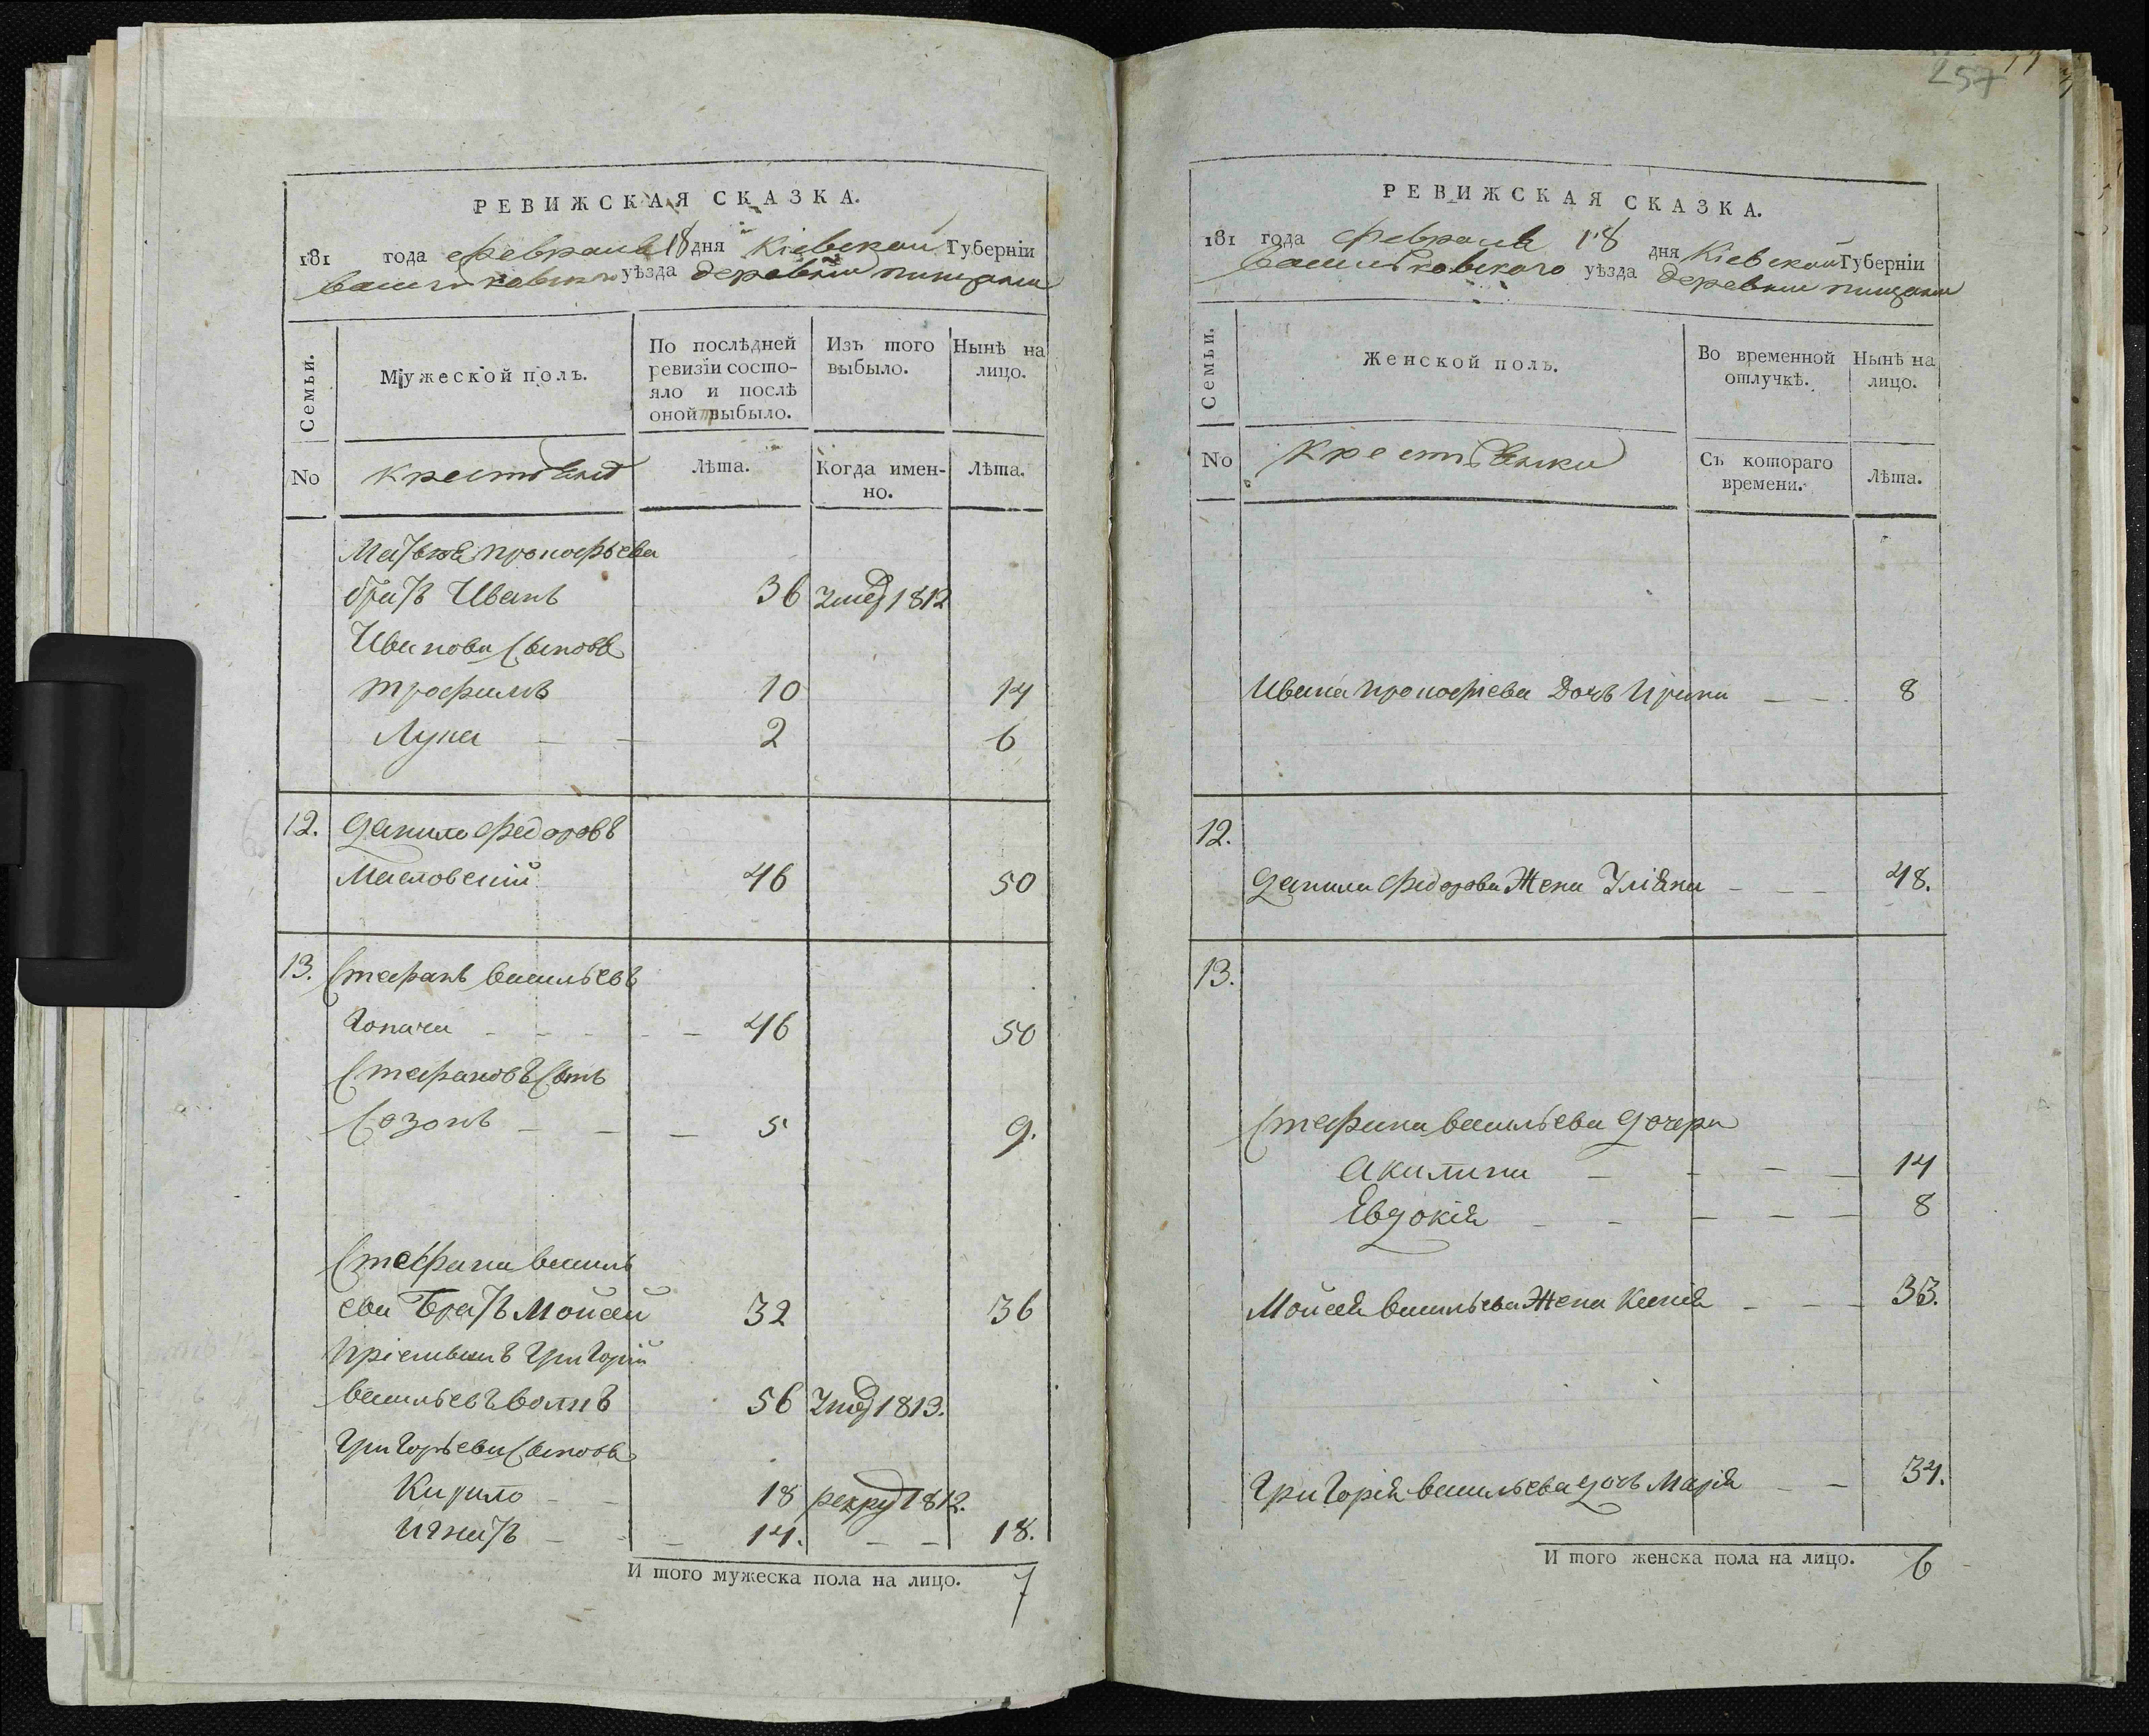 РЕВИЖСКАЯ СКАЗКА.
181 года февраля 18 дня Кіевской Губерніи
васильковского уѣзда деревни пищаки
Семьи.
Мужеской полъ.
По послѣдней ревизіи состо-
яло и послѣ
оной выбыло.
Изъ того выбыло.
Нынѣ на лицо.
No
крестьянѣ
Лѣта.
Когда имен-
но.
Лѣта.
Матвея прокофьева
братъ Иванъ 36 умер 1812
Иванова сыновя
трофимъ 10 14
Лука 2 6
12. Данило федоровъ
Масловский 46 50
13. Стефанъ васильевъ
Гопачи 46 50
Стефановъ сынъ
Созонъ 5 9.
Стефана василь
ева Братъ Мойсей 32 36
пріемышъ григорій
васильевъ волыъ 56 умер 1813.
григорьева сыновя
Кирило 18 рекрут 1812.
игнатъ 14. 18.
И того мужеска пола на лицо. 7
257
РЕВИЖСКАЯ СКАЗКА.
181 года февраля 18 дня Кіевской Губерніи
васильковского уѣзда деревни пищаки
Семьи.
Женской полъ.
Во временной
отлучкѣ.
Нынѣ на
лицо.
No
крестьянки
Съ котораго
времени.
Лѣта.
Ивана прокофиева Дочь Ирина 8
12.
Данила федорова Жена Уліяна 48.
13.
Стефана васильева дочери
Акилина 14
Евдокія 8
Мойсея васильева Жена Ксенія 33.
григорія васильева дочь Марія 34.
И того женска пола на лицо. 6